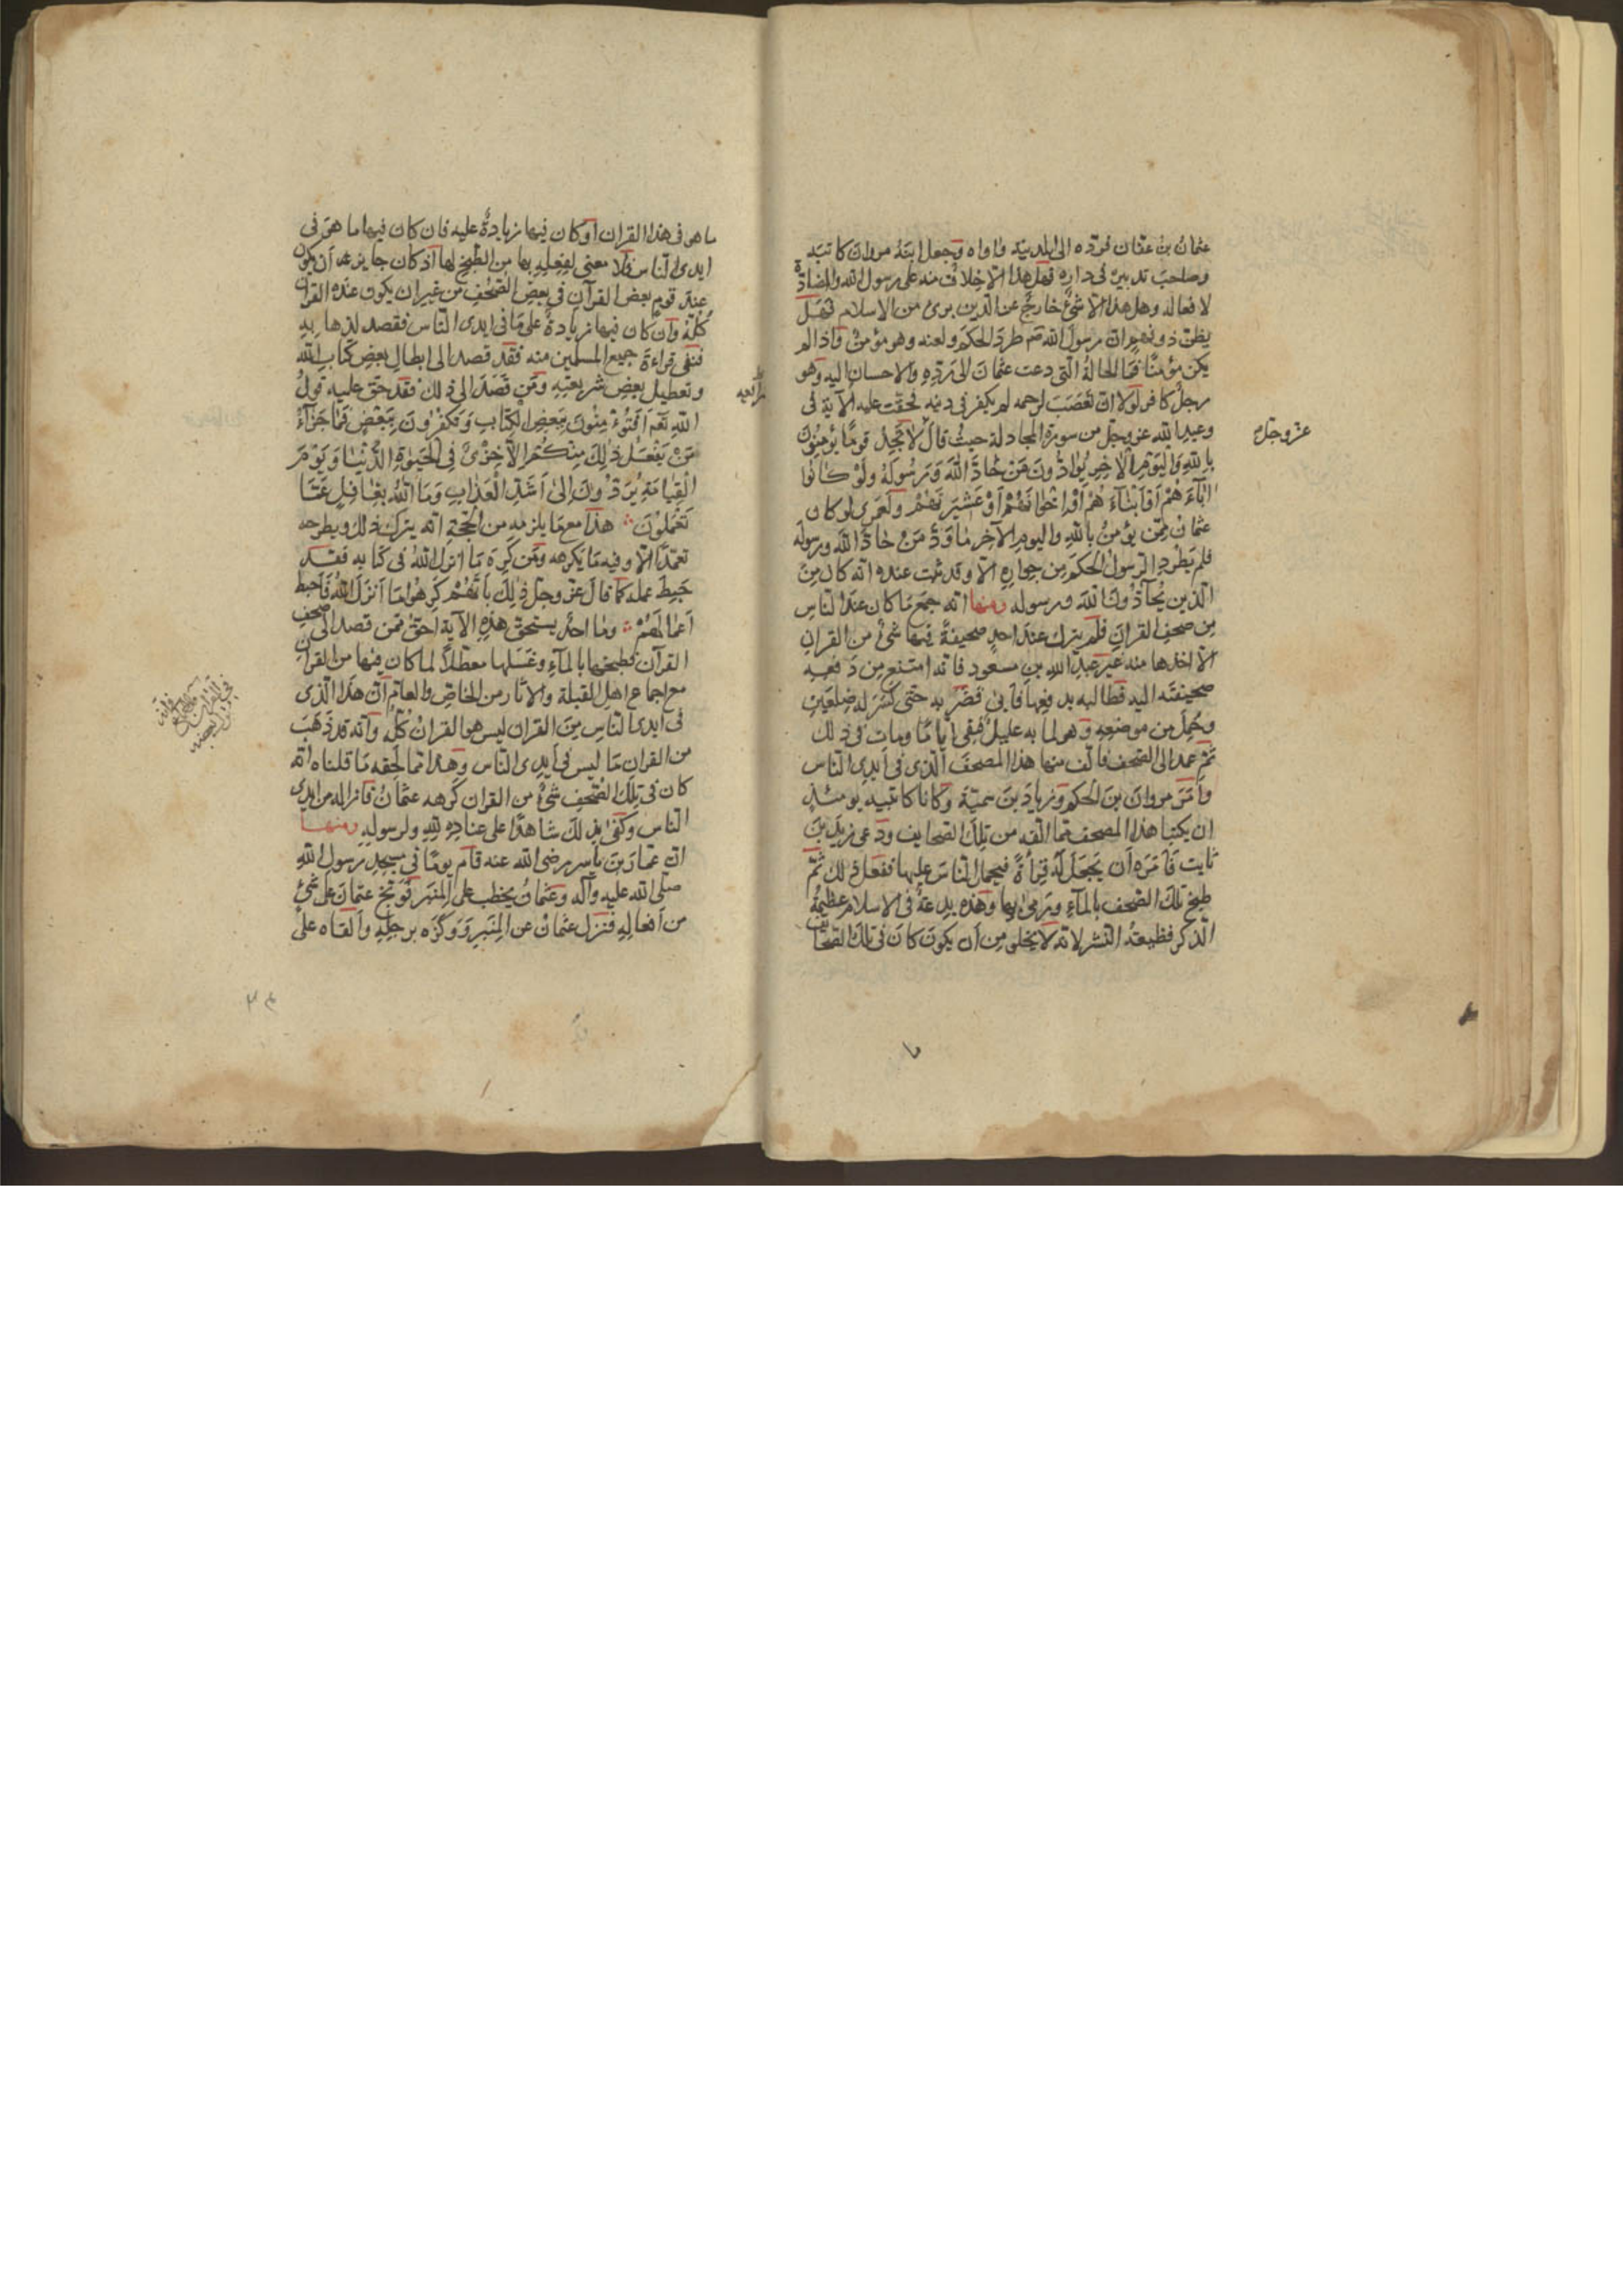 عثمانُ بنُ عفّان فردّه الى المدينة واواه وجعل ابنَهُ مروان كاتبَه
وصاحبَ تدبيرٍ فى داره فهل هذا الّا خِلافٌ منه على رسول الله والمضادّة
لافعاله وهل هذا الّا شئٌ خارجٌ عن الدّين برئ من الاسلام فهَل
يظنّ ذو فهمٍ انّ رسولَ الله صم طردَ الحكمَ ولعنه وهو مؤمنٌ واذا لم
يكن مؤمنًا فما الحالةُ الّتى دعت عثمانَ الى رَدِّهِ والاحسان اليه وهو
رجلٌ كافر لولا انّه تعصّبَ لرحمه لم يكفر فى دينه فحقّت عليه الآية فى
وعيد الله عزوجل من سورة المجادلة حيثُ قالَ لَا تَجِدُ قومًا يُؤمِنُونَ
بِاللهِ وَاليَومِ الآخِرِ يُوَادُّونَ مَنْ حَادَّ اللهَ وَرَسُولَهُ ولَوْ كَانُوا
ابَآءَهُمْ أَوْ أَبْنَآءَهُمْ أَوْ إخْوَانَهُمْ أَوْ عَشِيرَتَهُمْ ولَعَمرى لو كان
عثمانُ ممّن يؤمنُ باللهِ واليومِ الآخِرِ مَا وَدَّ مَنْ حَادَّ اللهَ ورسولَه
فلم يَطْرُدِ الرّسولُ الحكمَ من جوارِهِ الّا وقد ثبت عنده انّه كان مِنَ
الّذين يُحآدُّونَ اللهَ ورسوله ومنها انّه جمع مَا كان عند النّاسِ
مِن صحفِ القرانِ فلم يترك عند احدٍ صحيفةً فيها شئٌ من القرانِ
الّا اخذها منه غير عبدِ اللهِ بنِ مسعود فانّه امتنع مِن دَفعِه
صحيفتَه اليه فطالبه بدفعها فأبى فضَربه حتّى كسَر له ضِلعَينِ
وحُمِلَ من موضعِهِ وهو لما به عليلٌ فبقى أيّامًا ومات فى ذلك
ثمّ عمد الى الصّحف فألّف منها هذا المصحفَ الّذى فى أيدى النّاس
وأَمَرَ مروانَ بنَ الحكمِ وزيادَ بنَ سميّةَ وكانا كاتبيه يومئذٍ
ان يكتبا هذا المصحف ممّا الّفه من تلك الصّحايف ودعى زيدَ بنَ
ثابت فأمَرَه أن يَجعَلَ لَه قرأةً فيحمل النّاسَ عليها ففعلَ ذلك ثمّ
طبخ تلك الصّحف بالمآءِ ورَمى بها وهذه بدعةٌ فى الاسلام عظيمةُ
الذّكر فظيعةُ النّشر لانّه لا يخلو مِن أن يكونَ كانَ فى تلك الصّحايف
عزّوجلّ
ما
ما هو فى هذا القران أو كان فيها زيادةٌ عليه فان كان فيها ما هو فى
ايدى النّاس فلا معنى لفِعلِهِ بها من الطّبخِ لها اذ كان جايز عه أن يكون
عند قومٍ بعض القرآن فى بعضِ الصّحُفِ من غير ان يكون عنده القران
كُلّه وان كان فيها زيادةٌ على مَا فى ايدى النّاس فقصد لذهابه
فنفى قراءةَ جميع المسلمين منه فقد قصد الى ابطالِ بعضِ كتابِ الله
وتعطيل بعضِ شريعتِهِ ومَن قَصَدَ الى ذلك فقد حقّ عليه قولُ
اللهِ تعَم اَفَتُؤْمِنُونَ بِبَعْضِ الكِتَابِ وَتَكفُرُونَ بِبَعْضٍ فَمَا جَزَآءُ
مَنْ يَفْعَلُ ذٰلِكَ مِنْكُمْ الّا خِزْىٌ فِى الحَيٰوةِ الدُّنْيَا وَيَوْمَ
القِيَامَةِ يُرَدُّونَ إلىٰ اَشَدِّ الْعَذَابِ وَمَا اللهُ بِغَافِلٍ عَمَّا
تَعْمَلُونَ هذا مع مَا يلزمه من الحجّة انّه يترك ذلك ويطرحه
تعمّدًا الّا وفيه مَا يكرهه ومَن كَرِهَ مَا انزل اللهُ فى كتابه فقد
حَبِطَ عمله كما قالَ عزّوجلّ ذٰلِكَ بِأَنَّهُمْ كَرِهُوا مَا أَنزَلَ اللهُ فَأَحبَطَ
أَعمَالَهُمْ وما احدٌ يستحقّ هذِهِ الآيةِ احقّ ممّن قصد الى صحفِ
القرآن فطبخها بالمآءِ وغَسَلها معطّلًا لما كان فيها من القرآنِ
مع اجماع اهلِ القبلة والاثار من الخاصّ والعامّ أنّ هذا الّذى
فى أيدى النّاسِ مِنَ القران ليس هو القرانُ كُلّه وأنّه قد ذَهَبَ
من القرانِ مَا ليس فى أيدى النّاس وهذا ممّا لَحِقه مَا قلناه انّه
كان فى تلك الصُّحفِ شئٌ من القران كَرهه عثمانُ فازاله من ايدى
النّاس وكفى بذلكَ شاهدًا على عنادِهِ للهِ ولرسولِهِ ومنها
انّ عمّارَ بنَ ياسر رضى الله عنه قامَ يومًا فى مسجدِ رسول اللهِ
صلّى الله عليه وآله وعثمانُ يخطب على المنبر فوبّخ عثمانَ على شئٍ
من أفعالِهِ فنزل عثمانُ عن المنبرِ وَوكَزَه برجلِهِ وألقاه على
٣٤